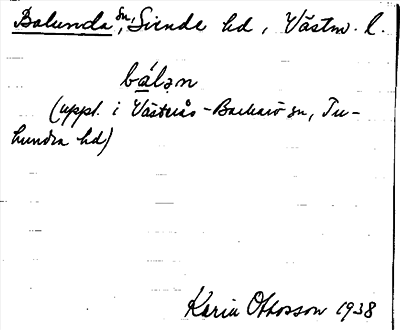 Balunda sn, Siende hd, Västm. l.
bálạn
(uppl. i Västerås-Barkarö sn, Tu-
hundra hd)
Karin Ottosson 1938